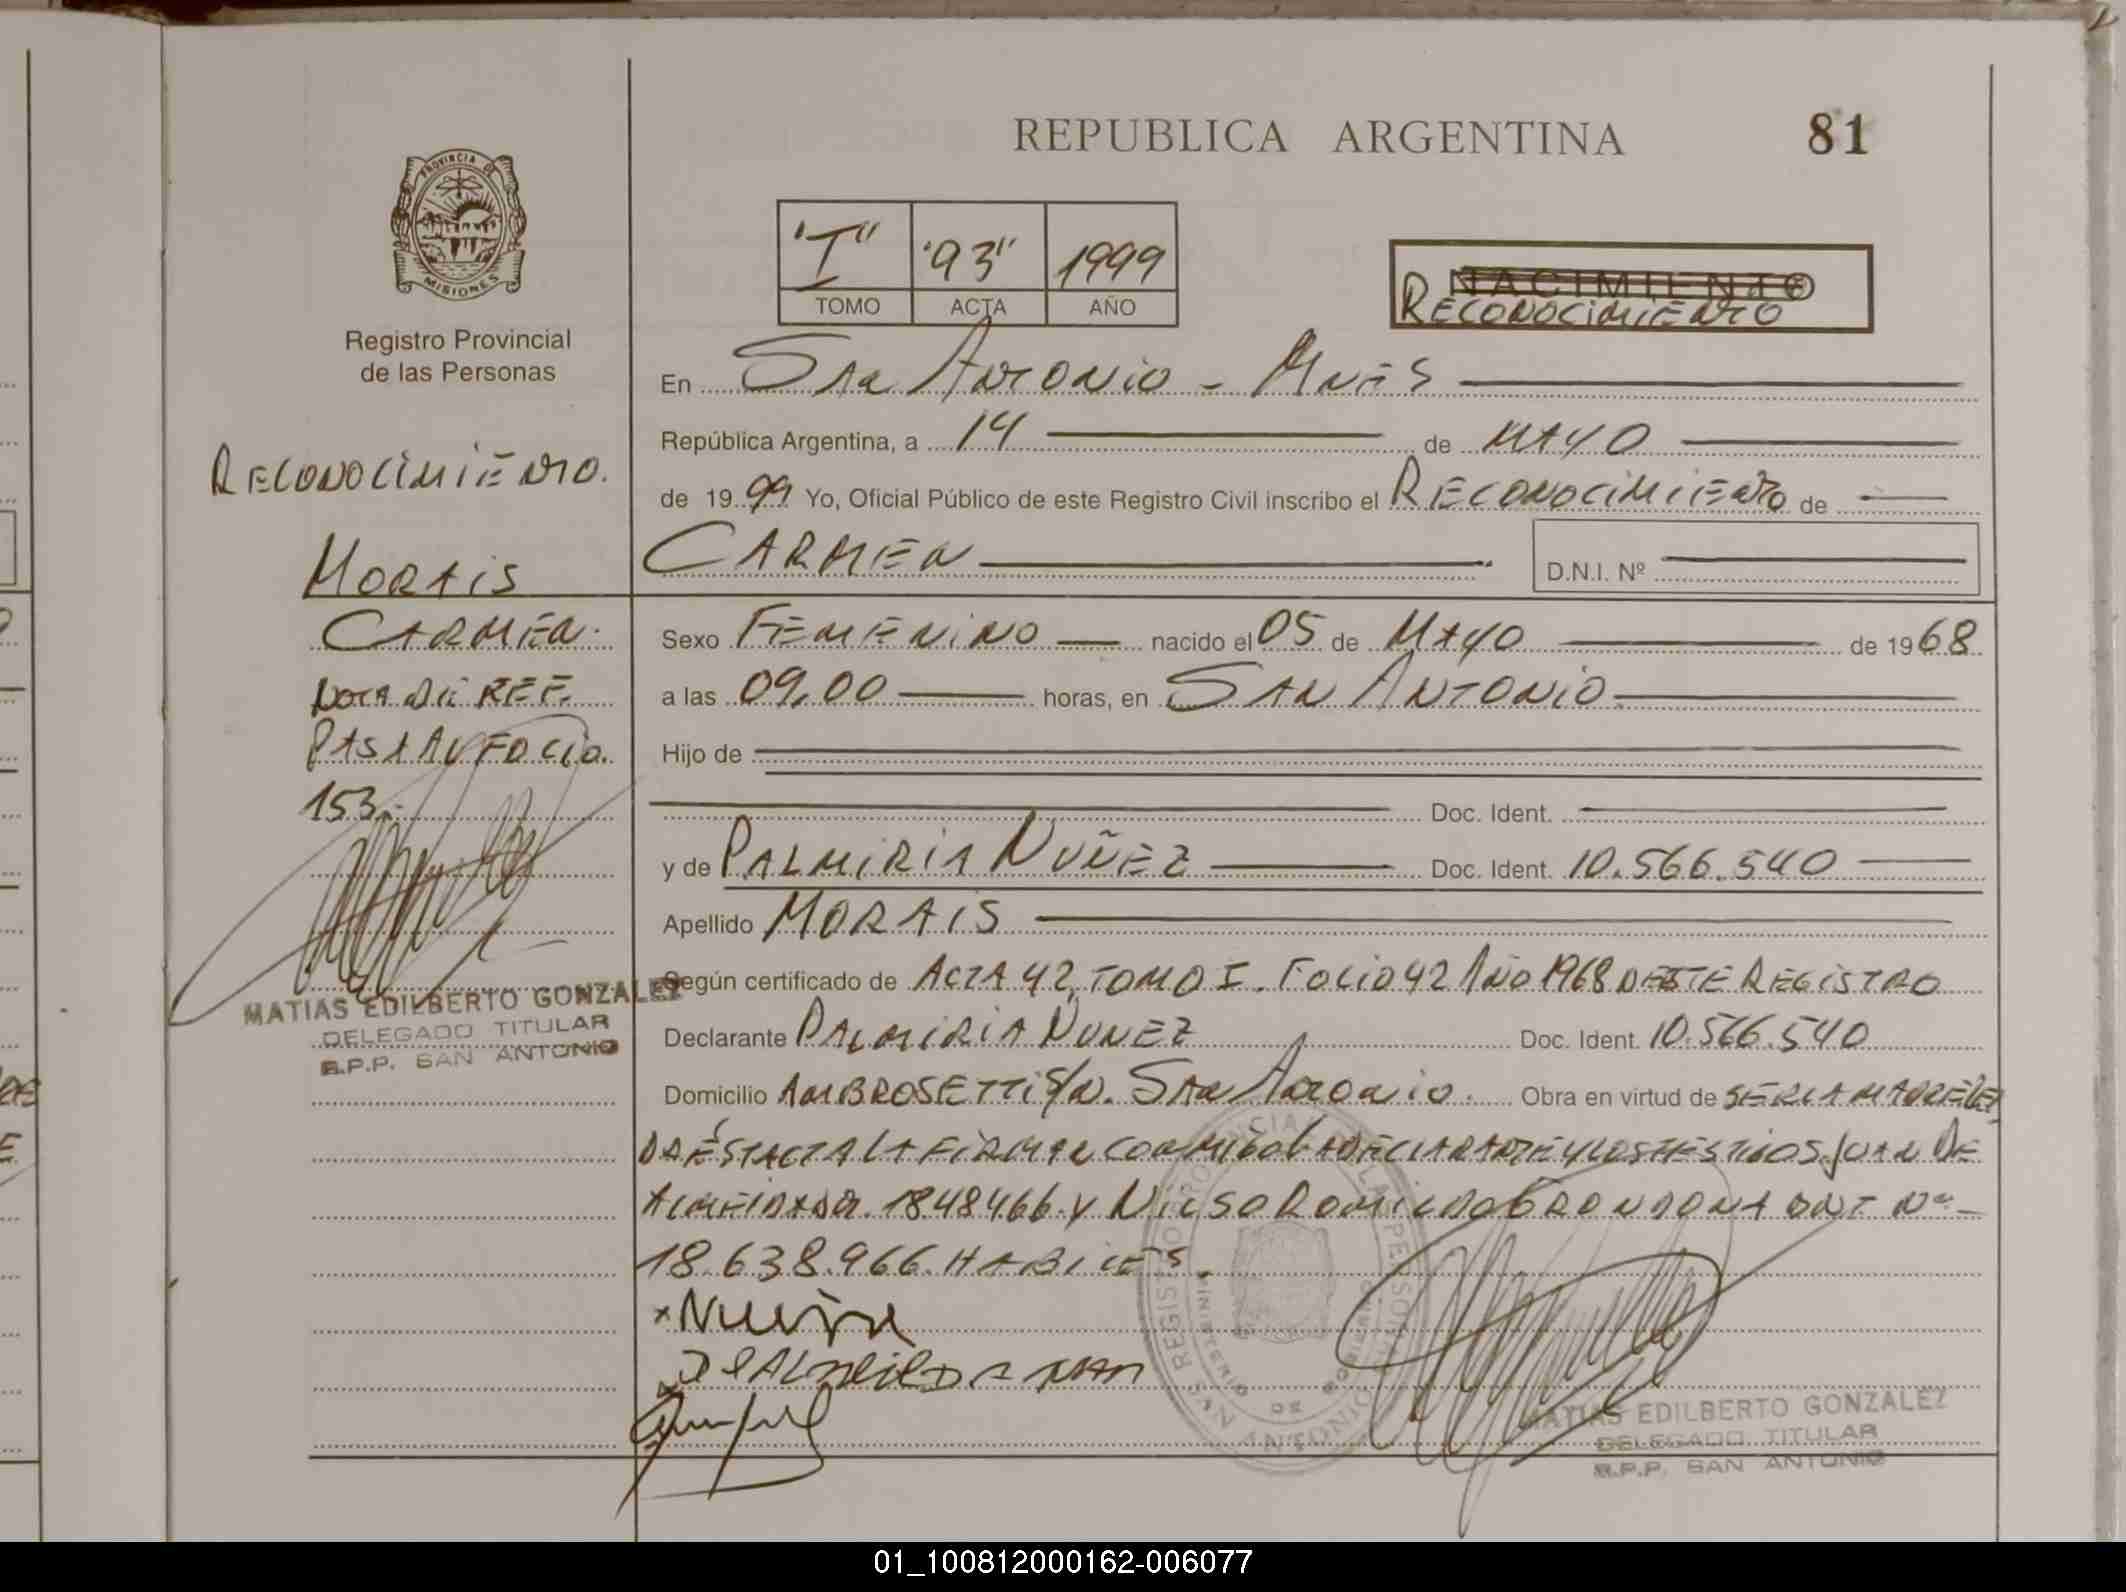 REPUBLICA ARGENTINA 81
PROVINCIA DE
MISIONES
Registro Provincial
de las Personas
"I" "93" 1999
TOMO ACTA AÑO
NACIMIENTO
RECONOCIMIENTO
En San Antonio - Mnes
República Argentina, a 14 de MAYO
de 1999 Yo, Oficial Público de este Registro Civil inscribo el RECONOCIMIENTO de
CARMEN D.N.I. Nº
Sexo FEMENINO nacido el 05 de MAYO de 1968
a las 09,00 horas, en SAN ANTONIO
Hijo de
Doc. Ident.
y de PALMIRIA NUÑEZ Doc. Ident. 10.566.540
Apellido MORAIS
Según certificado de ACTA 42, TOMO I. FOLIO 42 AÑO 1968 DE ESTE REGISTRO
Declarante PALMIRIA NUNEZ Doc. Ident. 10.566.540
Domicilio AMBROSETTI S/N. San Antonio. Obra en virtud de SER LA MADRE
ESTA ACTA LA FIRMAN CONMIGO LA DECLARANTE Y LOS TESTIGOS JUAN DE
ALMEIDA 1848466 Y NILSO ROMILDO DNI Nº
18.638.966. HABILES.
RECONOCIMIENTO.
MORAIS
CARMEN.
NOTA DE REF.
PASA AU FOLIO.
153.-
MATIAS EDILBERTO GONZALEZ
DELEGADO TITULAR
R.P.P. SAN ANTONIO
MATIAS EDILBERTO GONZALEZ
DELEGADO TITULAR
R.P.P. SAN ANTONIO
01_100812000162-006077